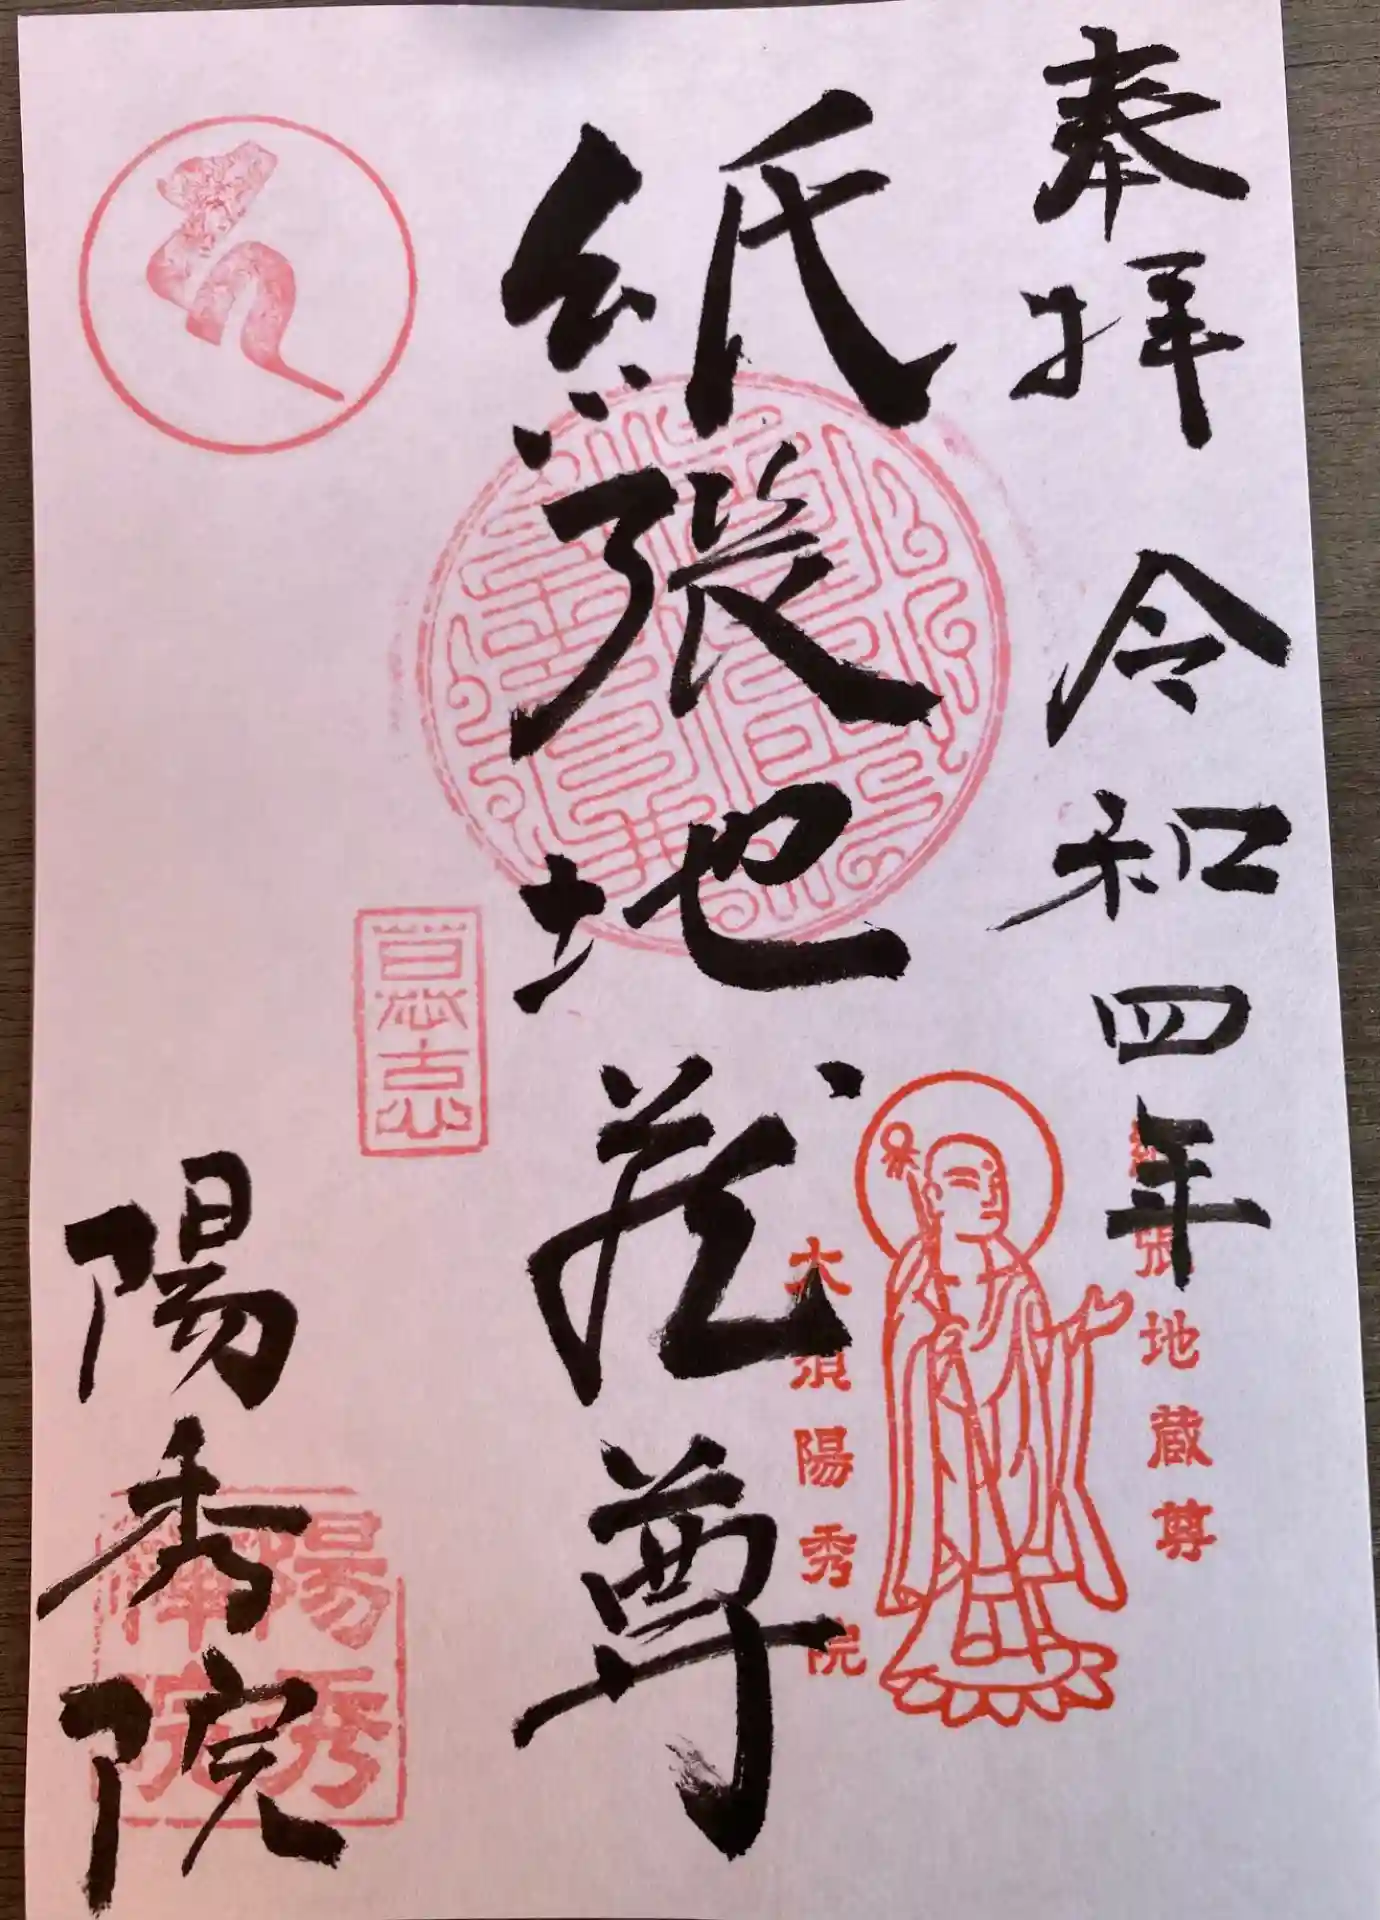 奉拝 令和四年
紙張地蔵尊
陽秀院
紙張地蔵尊
大須陽秀院
陽秀禅院